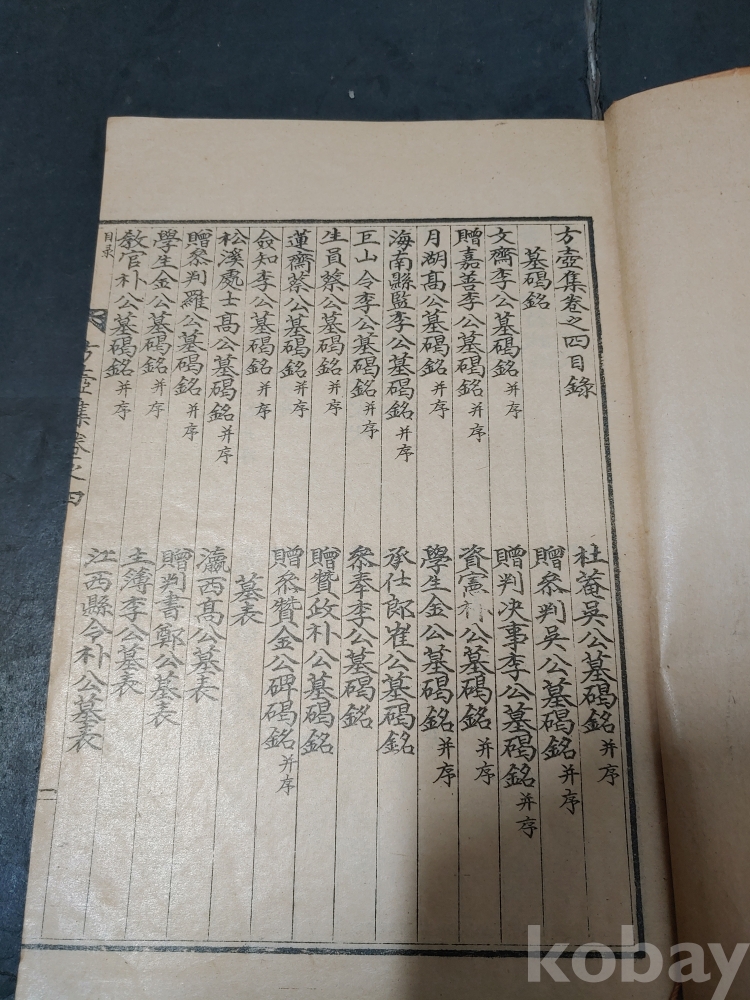 方壺集卷之四目錄
墓碣銘
文齋李公墓碣銘并序
贈嘉善李公墓碣銘并序
月湖高公墓碣銘并序
海南縣監李公墓碣銘并序
匞山令李公墓碣銘并序
生員蔡公墓碣銘并序
蓮齋蔡公墓碣銘并序
僉知李公墓碣銘并序
松溪處士高公墓碣銘并序
贈叅判羅公墓碣銘并序
學生金公墓碣銘并序
敎官朴公墓碣銘并序
杜菴吳公墓碣銘并序
贈叅判吳公墓碣銘并序
贈判决事李公墓碣銘并序
資憲 公墓碣銘并序
學生金公墓碣銘并序
承仕郎崔公墓碣銘
叅奉李公墓碣銘
贈贊政朴公墓碣銘
贈叅贊金公碑碣銘并序
墓表
瀛西高公墓表
贈判書鄭公墓表
主簿李公墓表
江西縣令朴公墓表
目录
方壺集卷之四
一
kobay